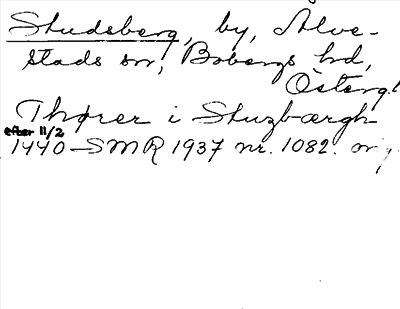 Studsberg, by, Alve-
stads sn, Bobergs hd,
Östergl
Thorer i Stuzbærgh
efter 11/2
1440 SMR 1937 nr. 1082. or,